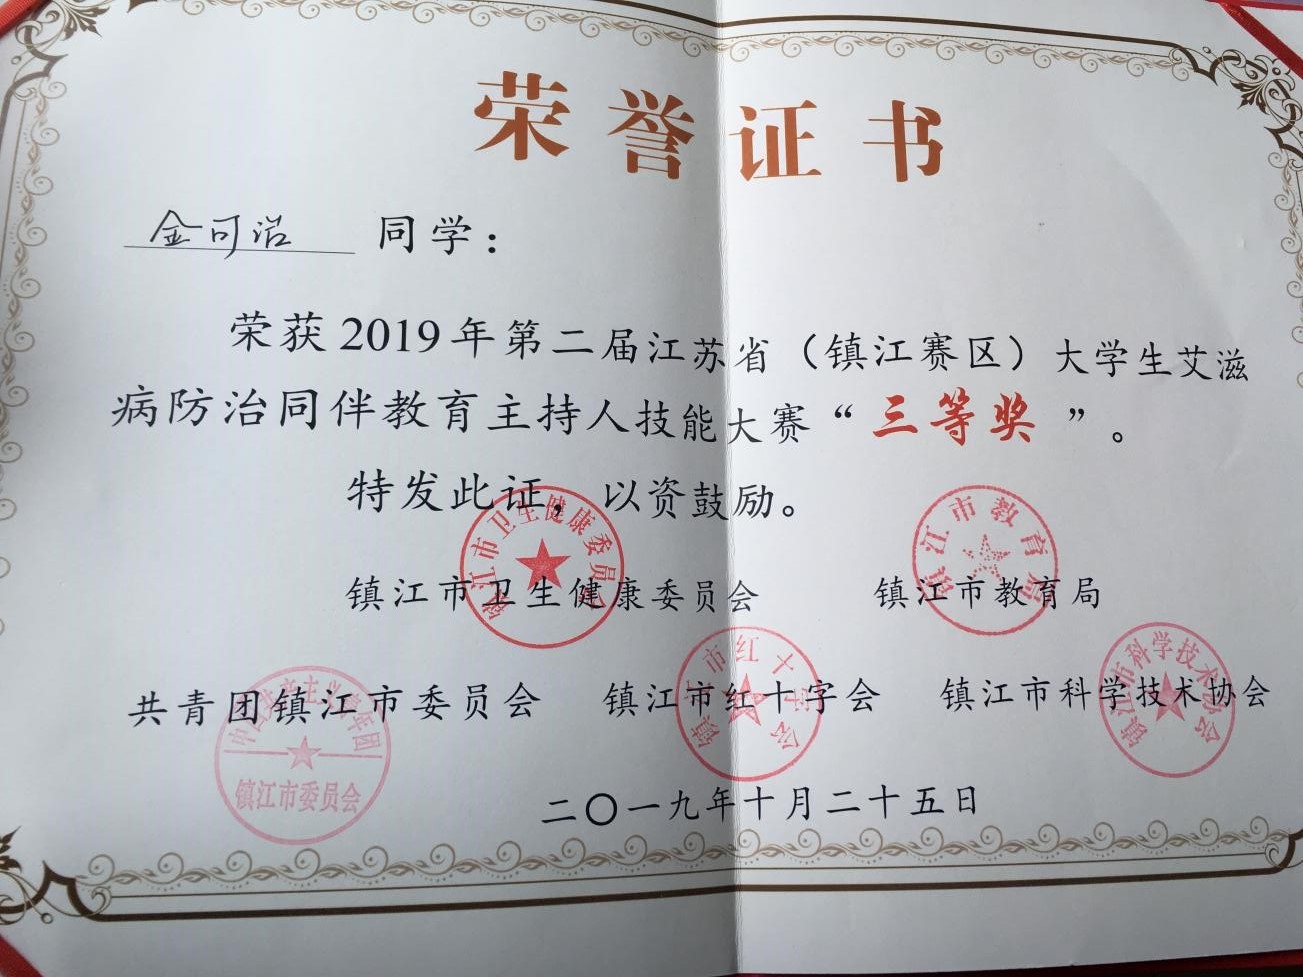 荣誉证书
金可滢 同学：
荣获2019年第二届江苏省（镇江赛区）大学生艾滋
病防治同伴教育主持人技能大赛“三等奖”。
特发此证，以资鼓励。
镇江市卫生健康委员会 镇江市教育局
共青团镇江市委员会 镇江市红十字会 镇江市科学技术协会
二〇一九年十月二十五日
镇江市卫生健康委员会
镇江市教育局
中国共产主义青年团
镇江市委员会
镇江市红十字会
镇江市科学技术协会